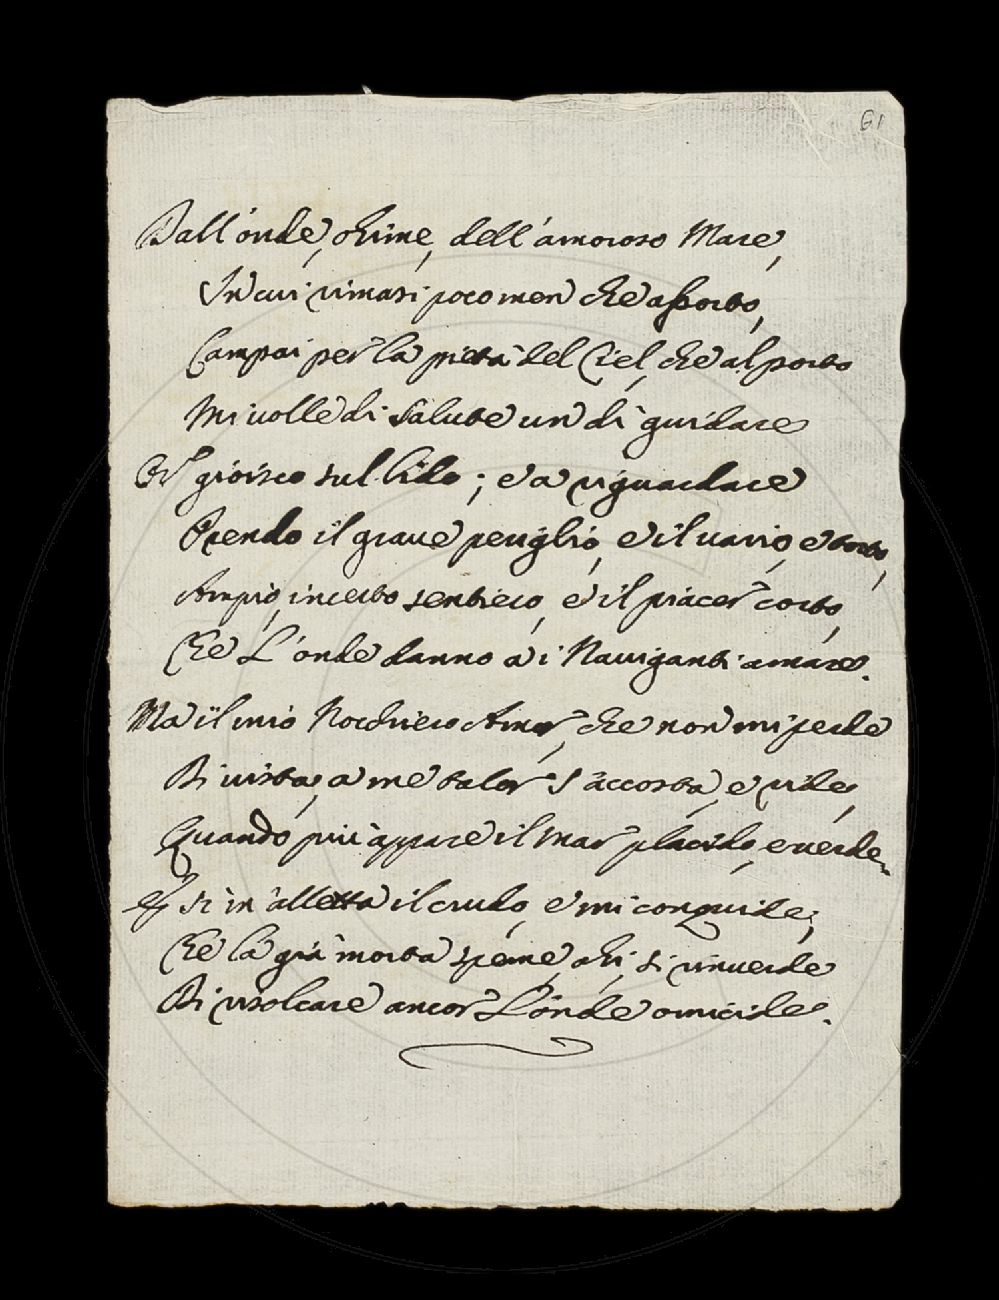 61
Dall'onde, ohime, dell'amoroso Mare,
In cui rimasi poco men che assorto,
Campai per la pietà del Ciel, che al porto
Mi volle di salute un dì guidare
Or gioisco sul lido; e a riguardare
Prendo il grave periglio, e il vario, e torto,
Ampio, incerto sentiero, e il piacer corto,
Che L'onde danno a i Naviganti amare.
Ma il mio Nocchiero Amor, che non mi perde
Di vista, a me talor s'accosta, e ride,
Quando più appare il mar placido, e verde,
E sì m'alletta il crudo, e mi conquide;
Che la già morta speme, ahi, si rinverde
Di risolcare ancor L'onde omicide.